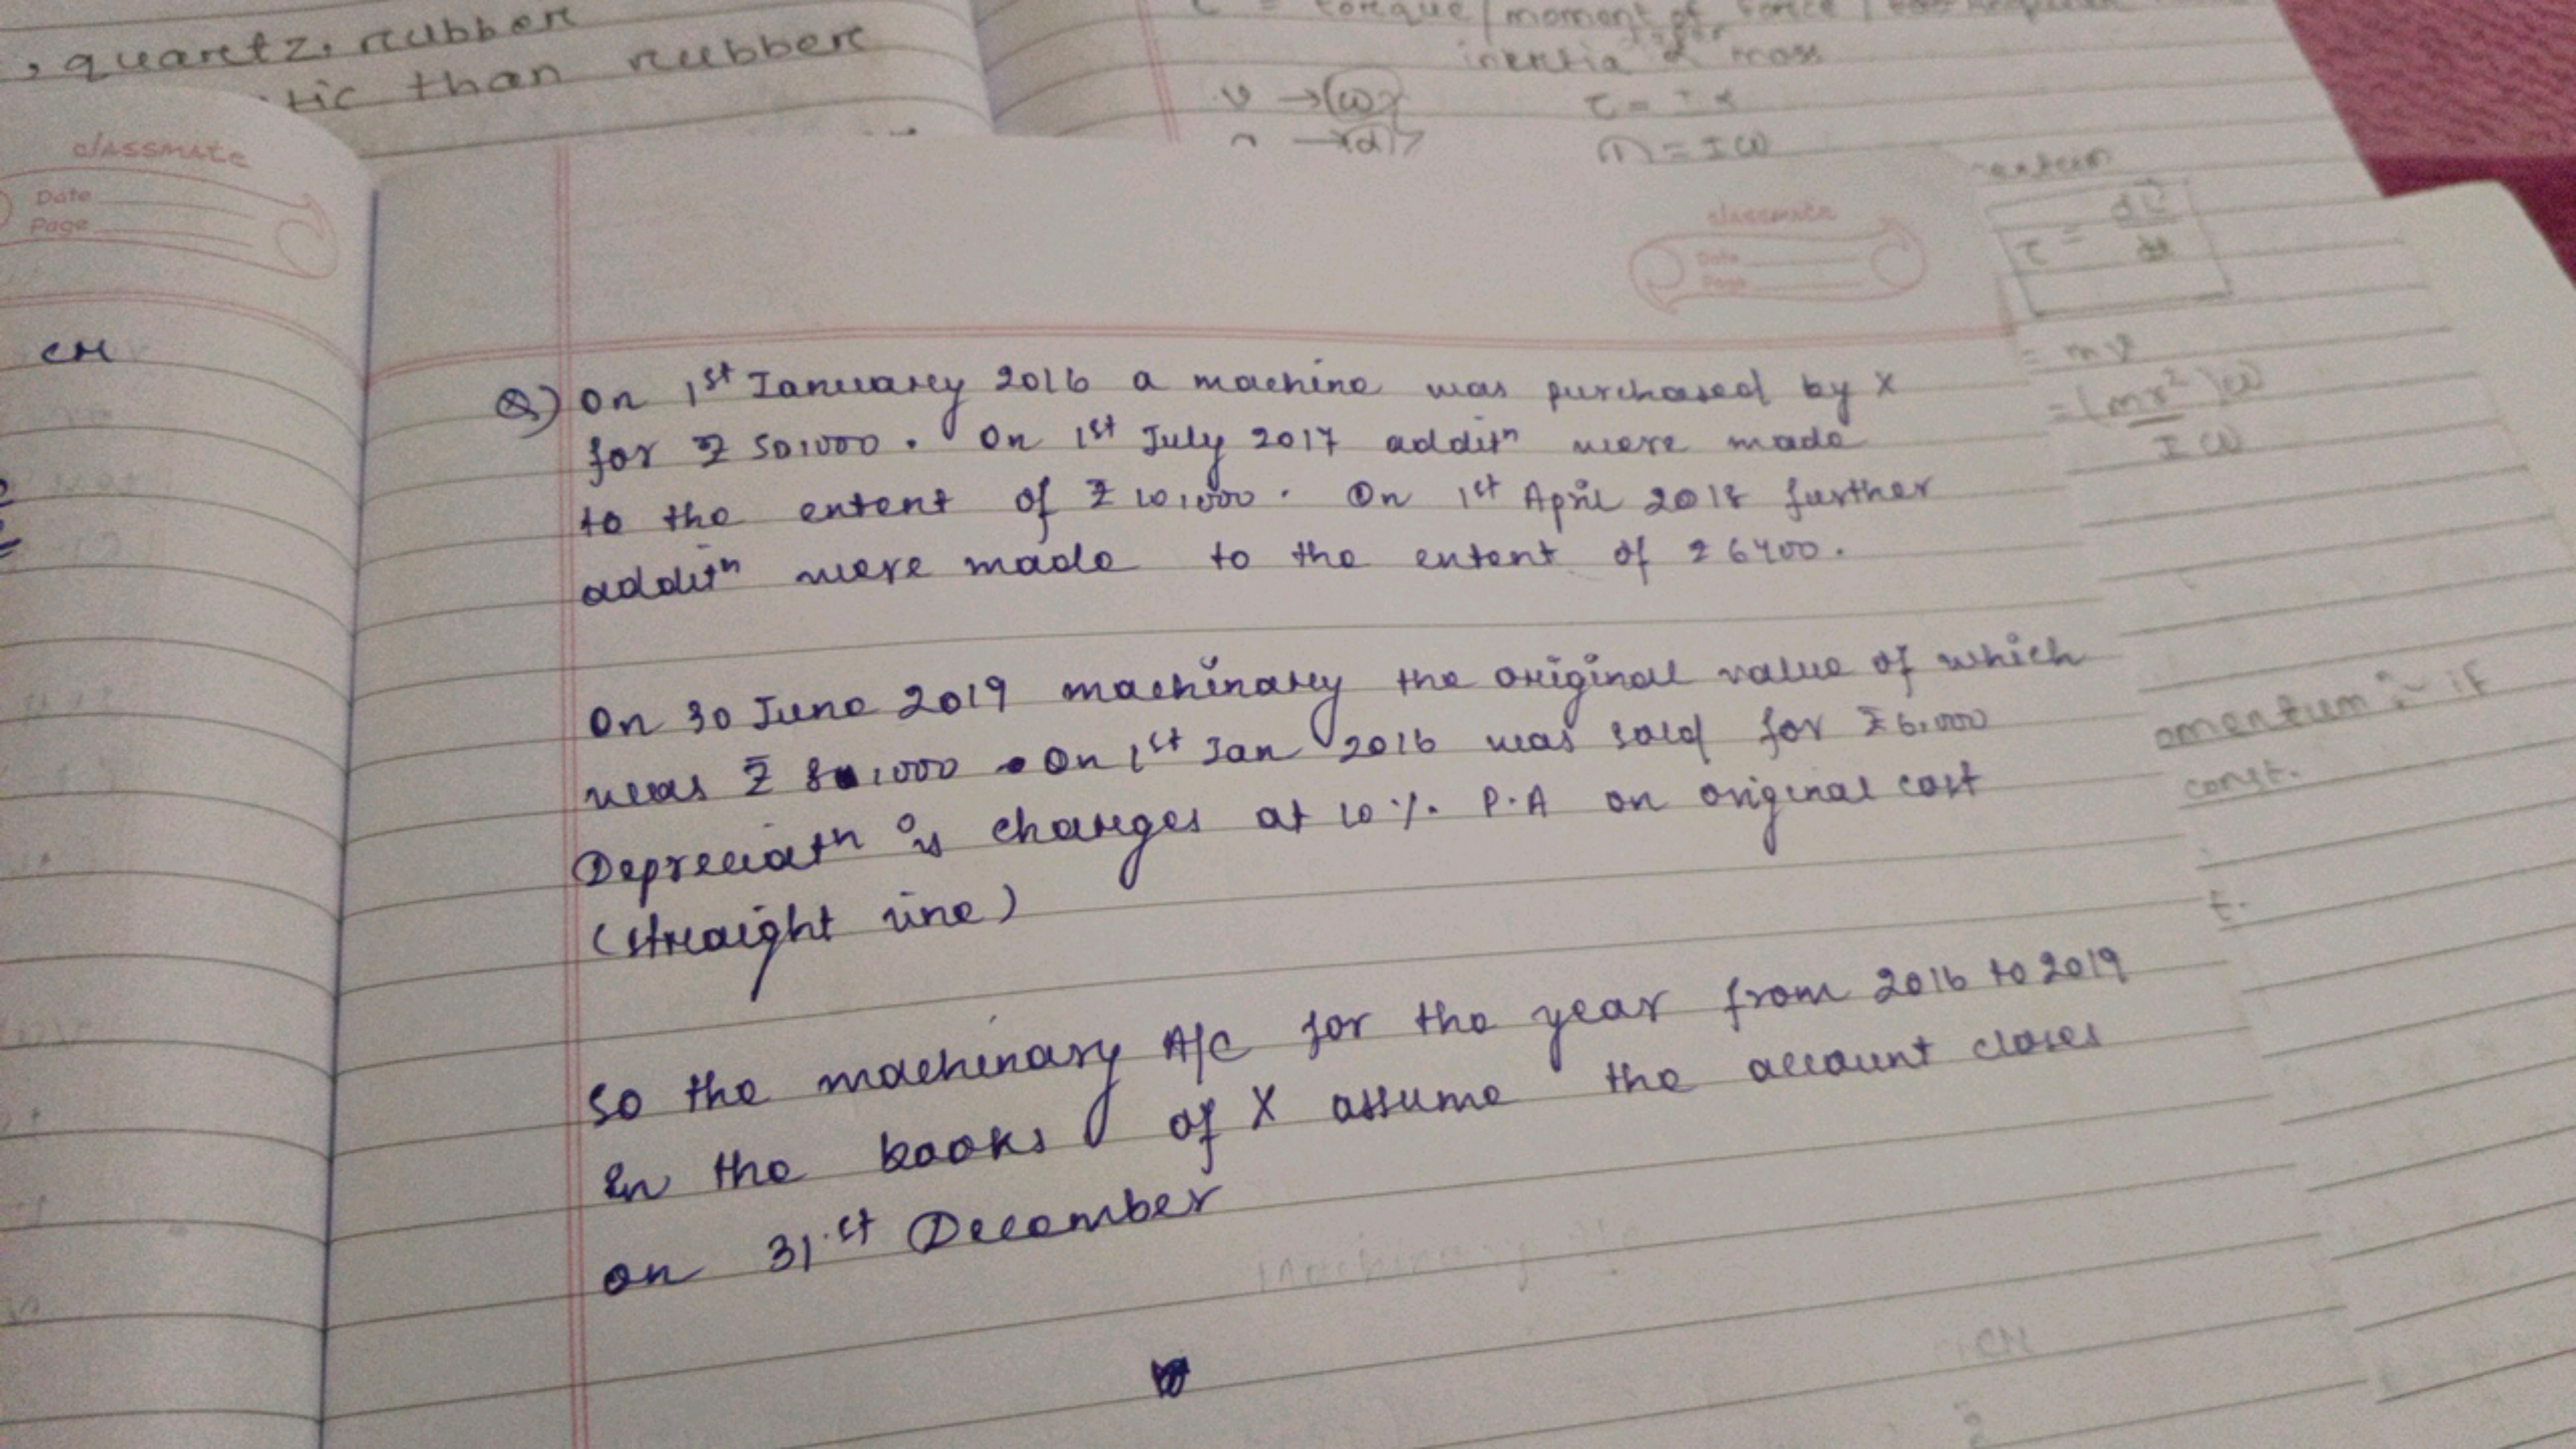 , quartz, rubber
tic than rubber
inertia & mass
τ = I α
= I ω
classmate
Date
Page
classmate
Date
Page
CH
= mv
= (mr²)ω
I ω
Q) On 1st January 2016 a machine was purchased by X
for ₹ 50,000. On 1st July 2017 additn were made
to the extent of ₹ 10,000. On 1st April 2018 further
additn were made to the extent of ₹ 6400.
On 30 June 2019 machinary the original value of which
was ₹ 8,000 On 1st Jan 2016 was sold for ₹ 6,000
Depreciatn is charges at 10 %. P.A on original cost
(straight line)
So the machinary A/c for the year from 2016 to 2019
in the books of X assume the account closes
on 31st December
omentum :- if
const.
t.